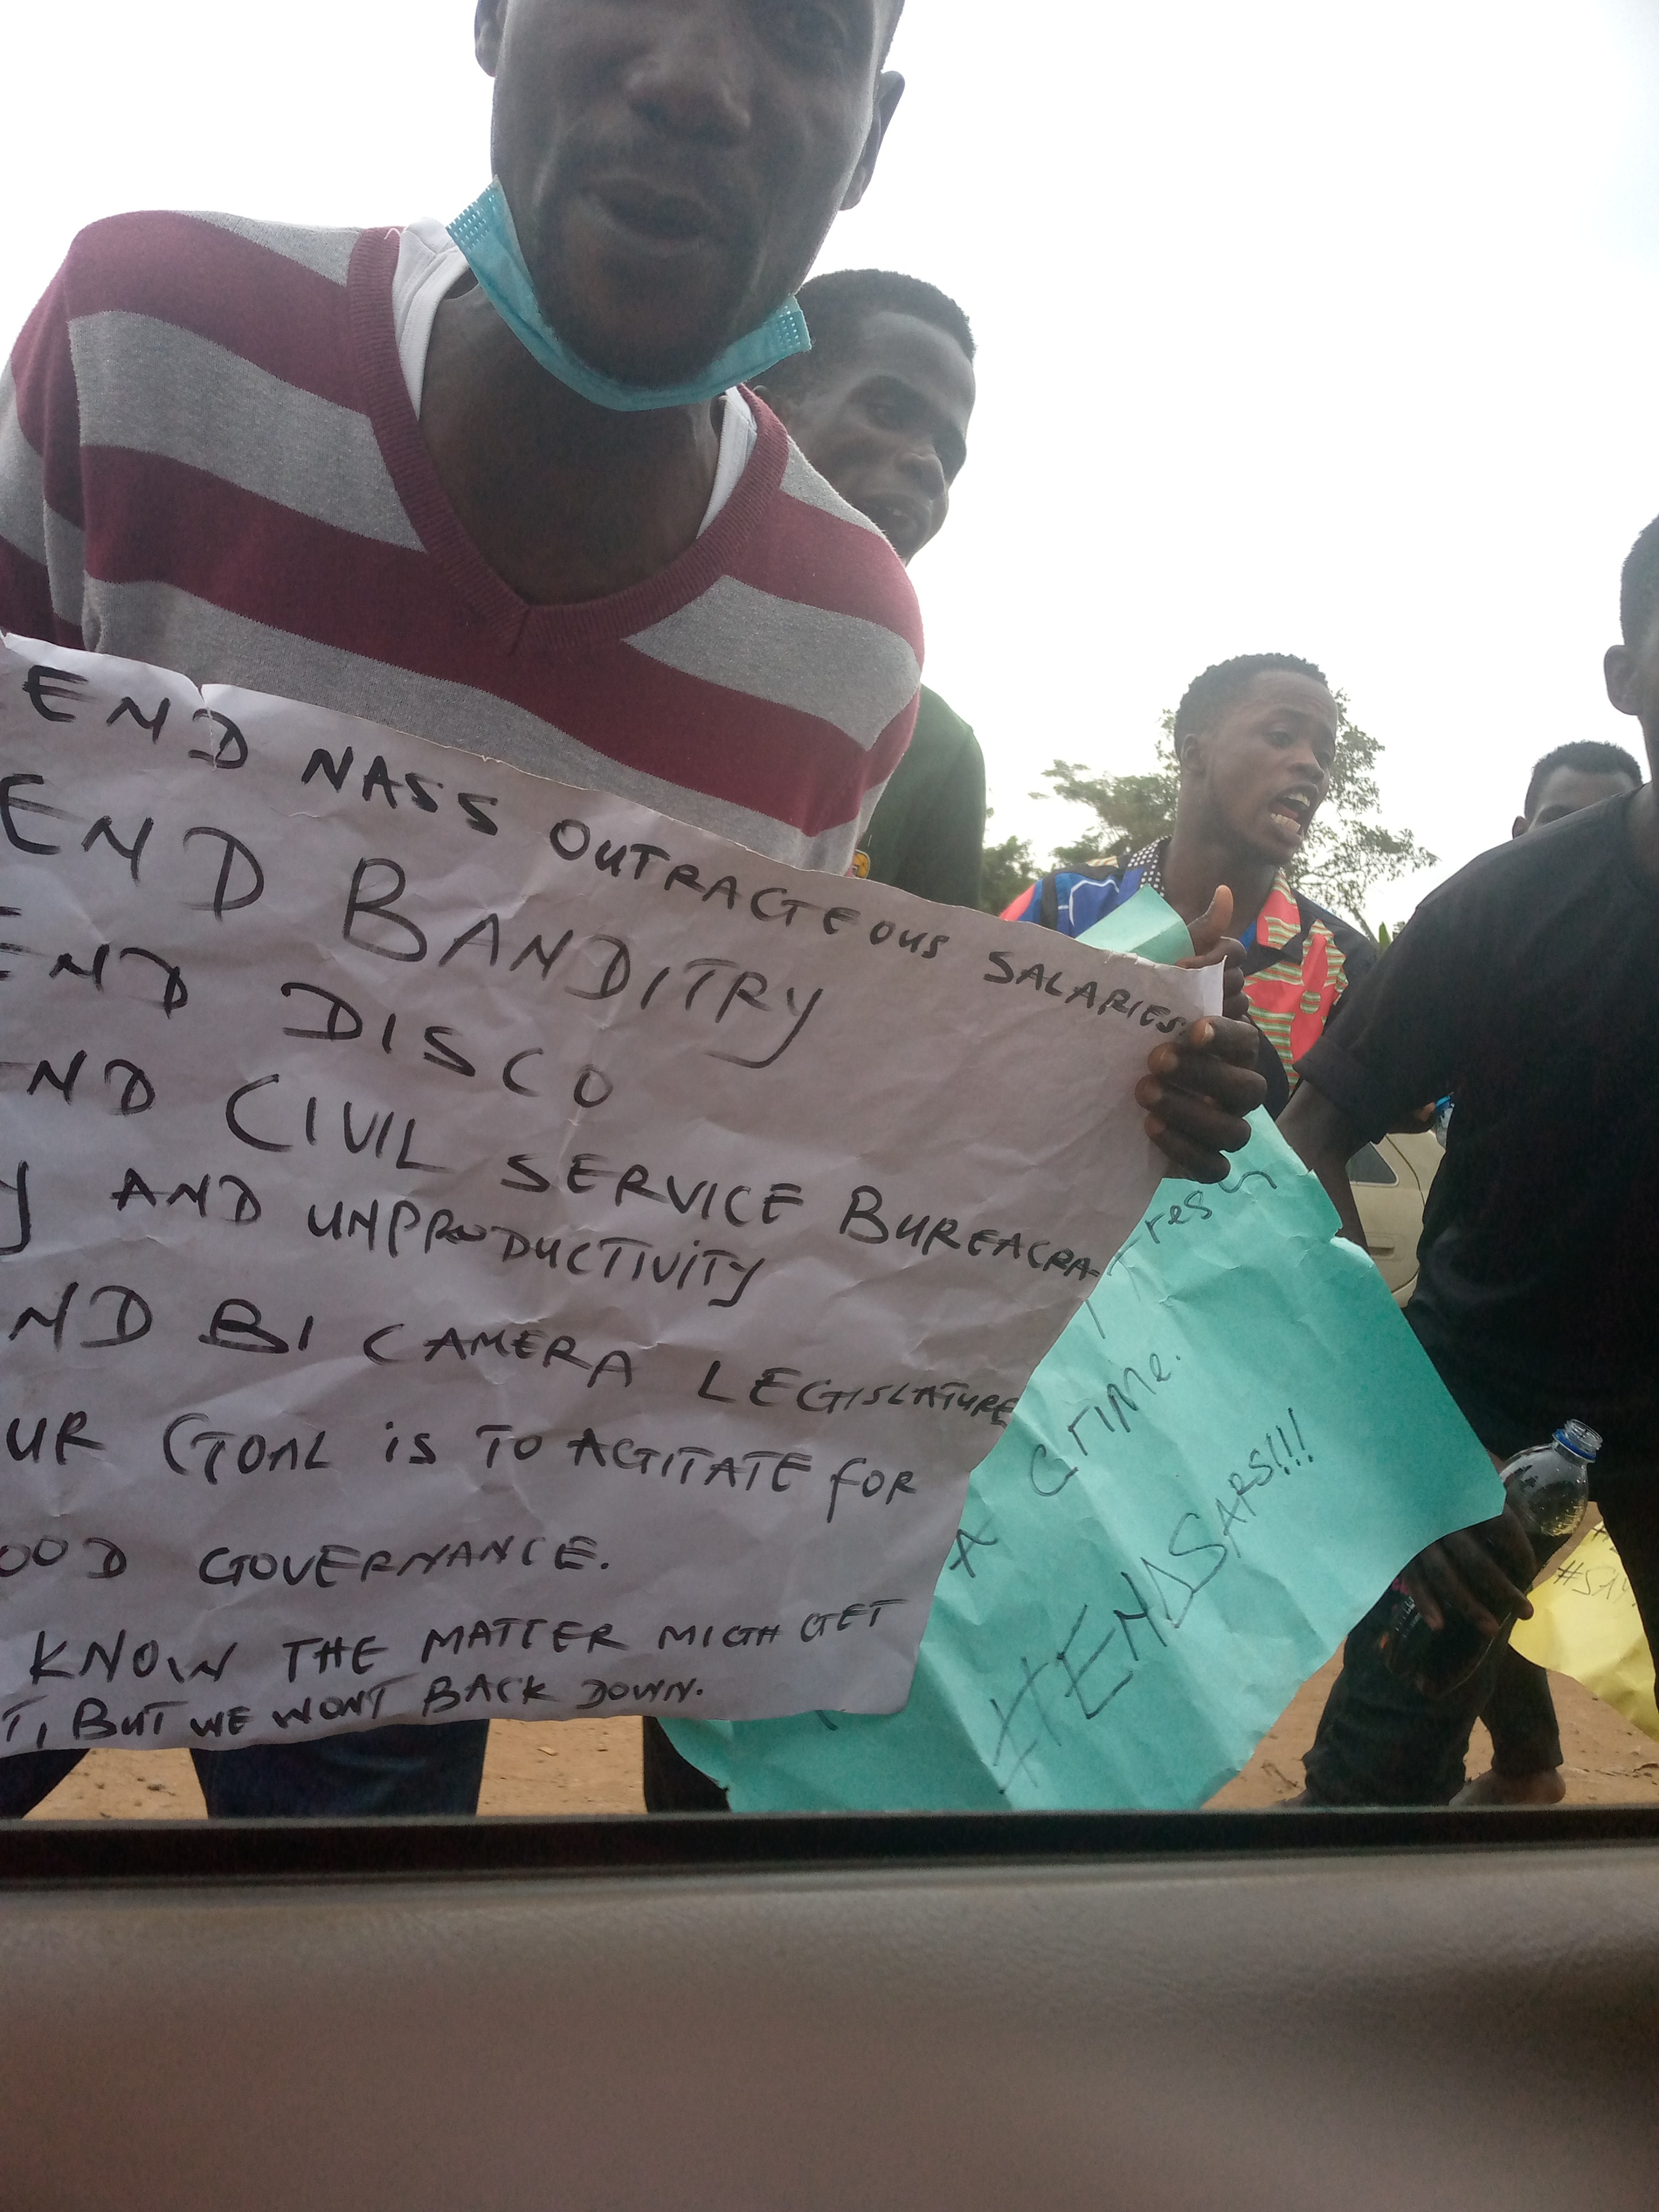 END NASS OUTRAGEOUS SALARIES
END BANDITRY
END DISCO
ND CIVIL SERVICE BUREACRA-
Y AND UNPRODUCTIVITY
ND BI CAMERA LEGISLATURE
UR GOAL is TO AGITATE FOR
OOD GOVERNANCE.
KNOW THE MATTER MIGH GET
T, BUT WE WONT BACK DOWN.
Fresh
A Crime.
#ENDSARS!!!